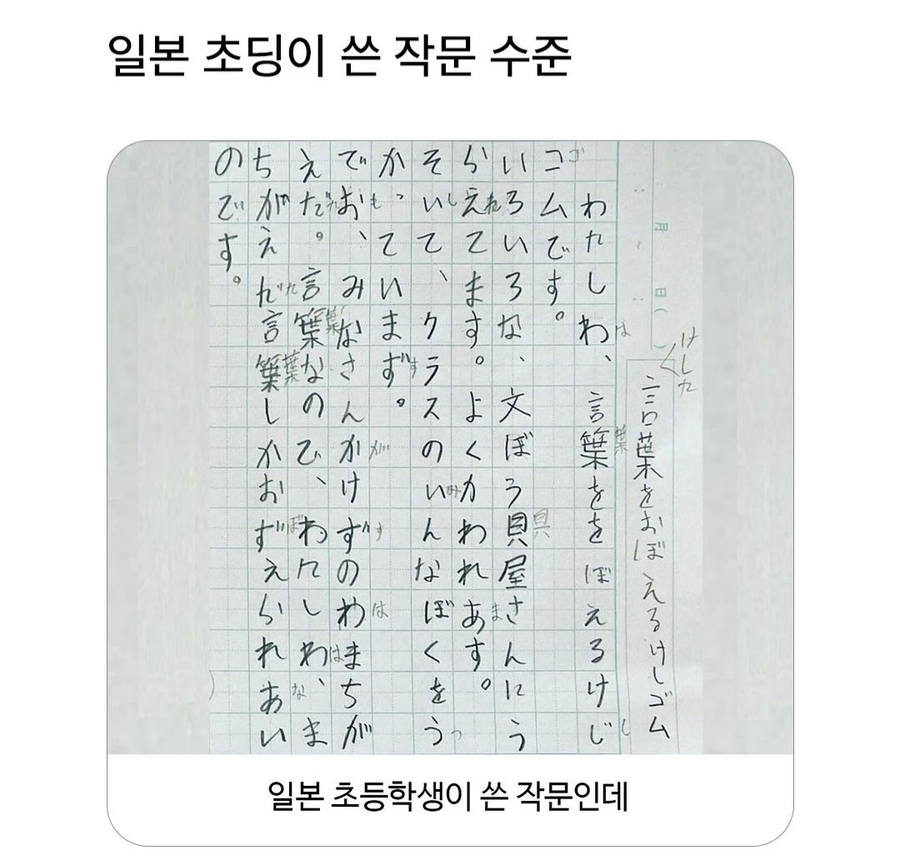 일본 초딩이 쓴 작문 수준
月 日( )
けした
言葉をおぼえるけしゴム
わたしわ、言葉ををぼえるけじ
は 葉 し
コムです。
ゴ
いろいろな、文ぼう貝屋さんにう
具
らえてます。よくかわれあす。
れ ま
そいて、クラスのいんなぼくをう
し み つ
かっていまず。
す
でお、みなさんかけずのわまちが
も が す は
えだ。言葉なので、わたしわ、ま
た 葉 は
ちがえだ言葉しかおずえられあい
た 葉 ぼ な
のです。
일본 초등학생이 쓴 작문인데